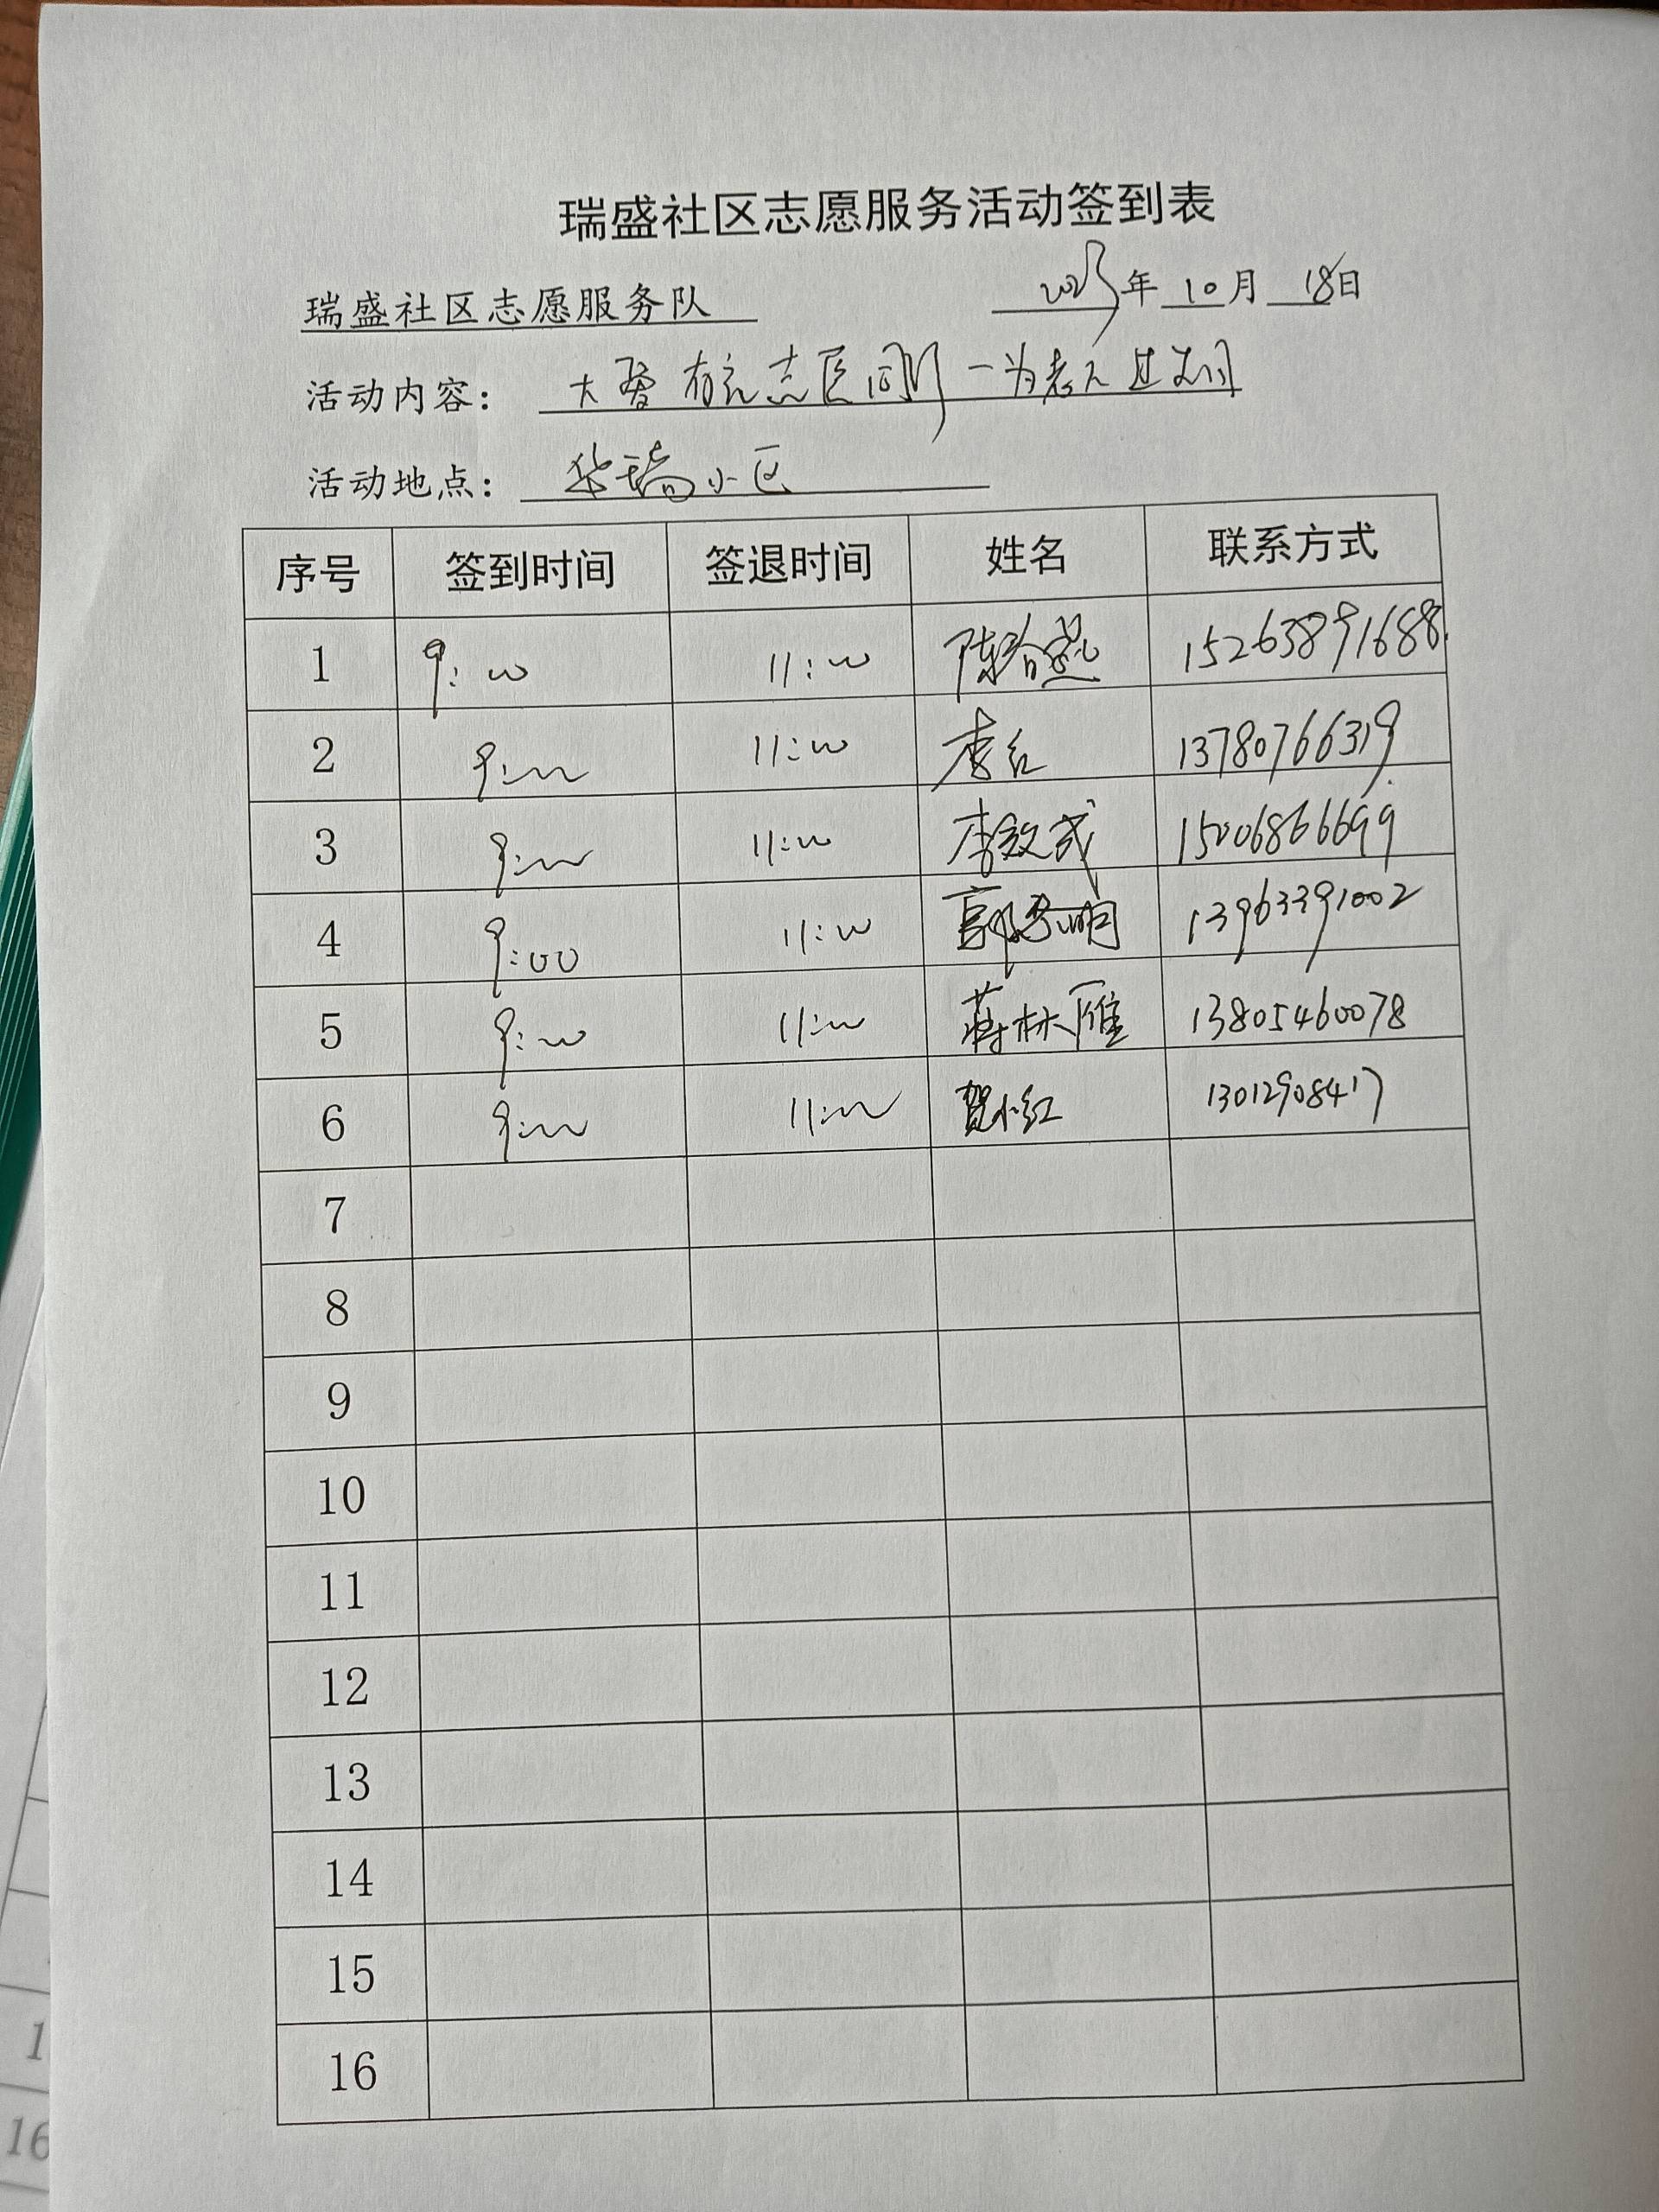 瑞盛社区志愿服务活动签到表
瑞盛社区志愿服务队 2023年 10月 18日
活动内容： 大 有 志 一为老人过
活动地点： 华瑞小区
序号 签到时间 签退时间 姓名 联系方式
1 9:00 11:00 陈 15263891688
2 9:00 11:00 李红 13780766319
3 9:00 11:00 李效成 15006866699
4 9:00 11:00 郭秀明 13963391002
5 9:00 11:00 蒋林雁 13805460078
6 9:00 11:00 贺小红 13012908417
7
8
9
10
11
12
13
14
15
16
1
16